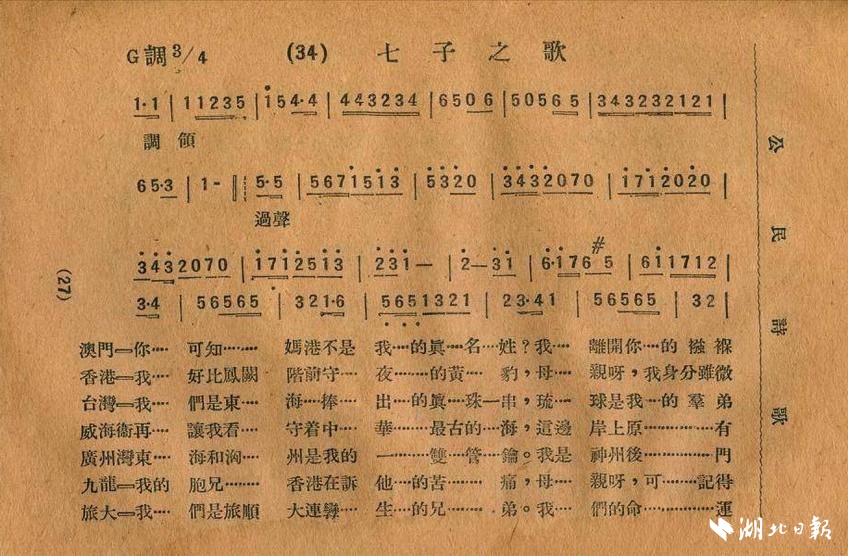 G調3/4 (34) 七子之歌
1·1 | 11235 | 154·4 | 443234 | 6506 | 50565 | 343232121 |
調領
65·3 | 1- || 5·5 | 5671513 | 5320 | 3432070 | 1712020 |
過聲
3432070 | 1712513 | 231— | 2—31 | 6·1765 | 611712 |
#
3·4 | 56565 | 321·6 | 5651321 | 23·41 | 56565 | 32 |
澳門═你… 可知…… 媽港不是 我…的眞…名…姓?我… 離開你…的 襁褓
香港═我… 好比鳳闕 階前守… 夜……的黃… 豹,母… 親呀,我身分雖微
台灣═我… 們是東… 海…捧… 出…的眞…珠一串,琉… 球是我…的 羣弟
威海衞再… 讓我看… 守着中… 華……最古的…海,這邊 岸上原……… 有
廣州灣東… 海和洶… 州是我的 一……雙…管…鑰。我是 神州後…… 門
九龍═我的 胞兄…… 香港在訴 他…的苦… 痛,母… 親呀,可…記得
旅大═我… 們是旅順 大連孿… 生…的兄… 弟。我… 們的命…… 運
(27)
公民詩歌
湖北日報